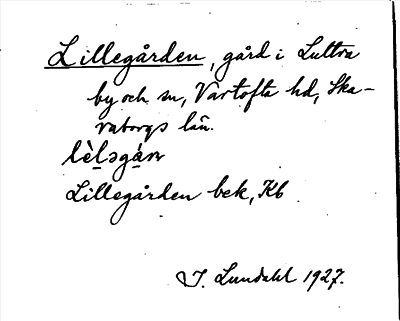 Lillegården, gård i Luttra
by och sn, Vartofta hd, Ska-
raborgs län.
lèl̠əgán
Lillegården bek, Kb
I. Lundahl 1927.